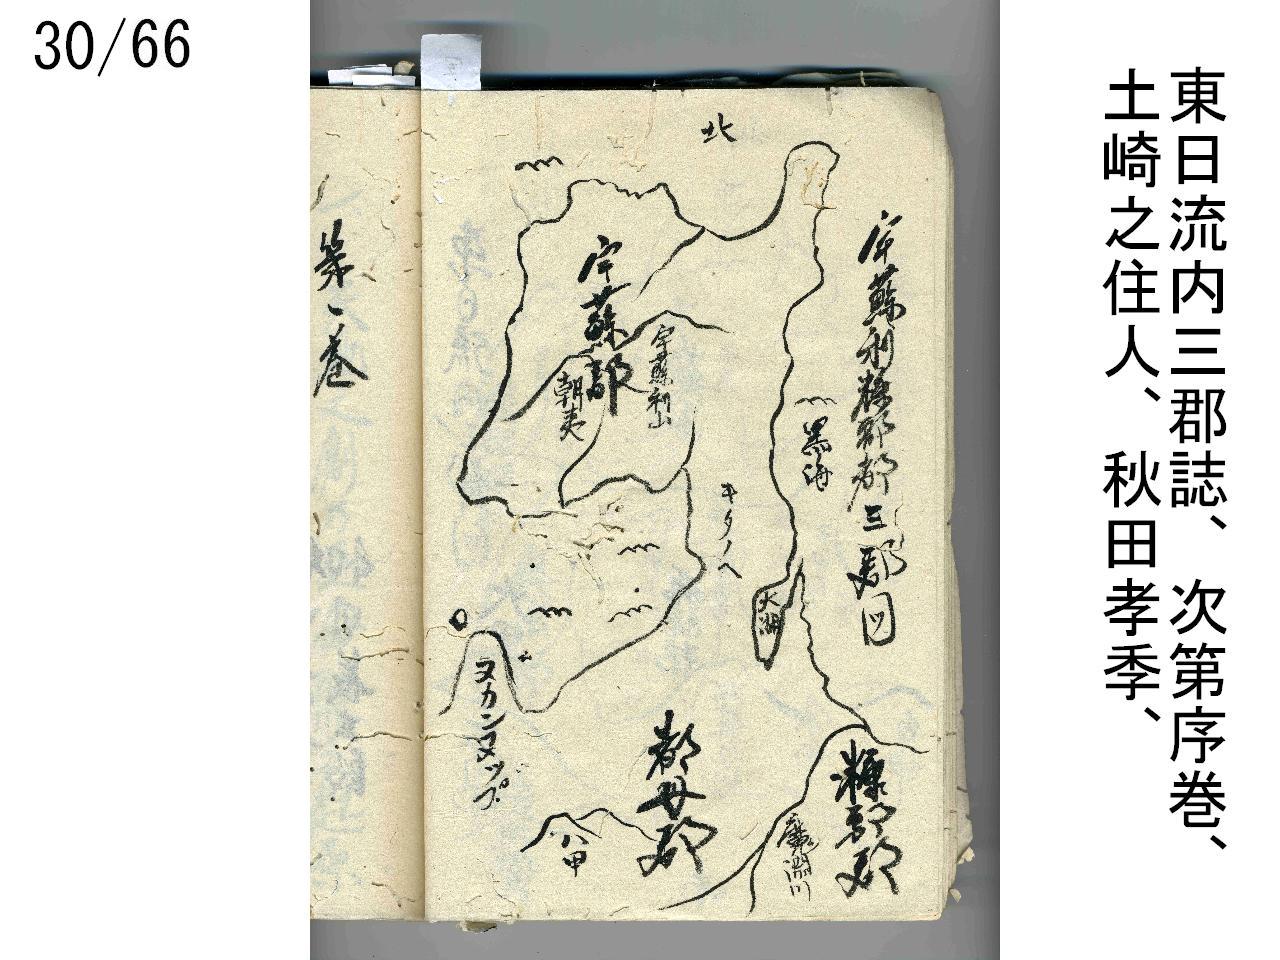 30/66
東日流内三郡誌、次第序巻、
土崎之住人、秋田孝季、
北
宇蘇利糠部都三郡図
宇蘇郡
宇蘇利山
朝夷
黒海
キタノヘ
大湖
ヌカンヌップ
都母郡
糠部郡
八甲
川
第一巻